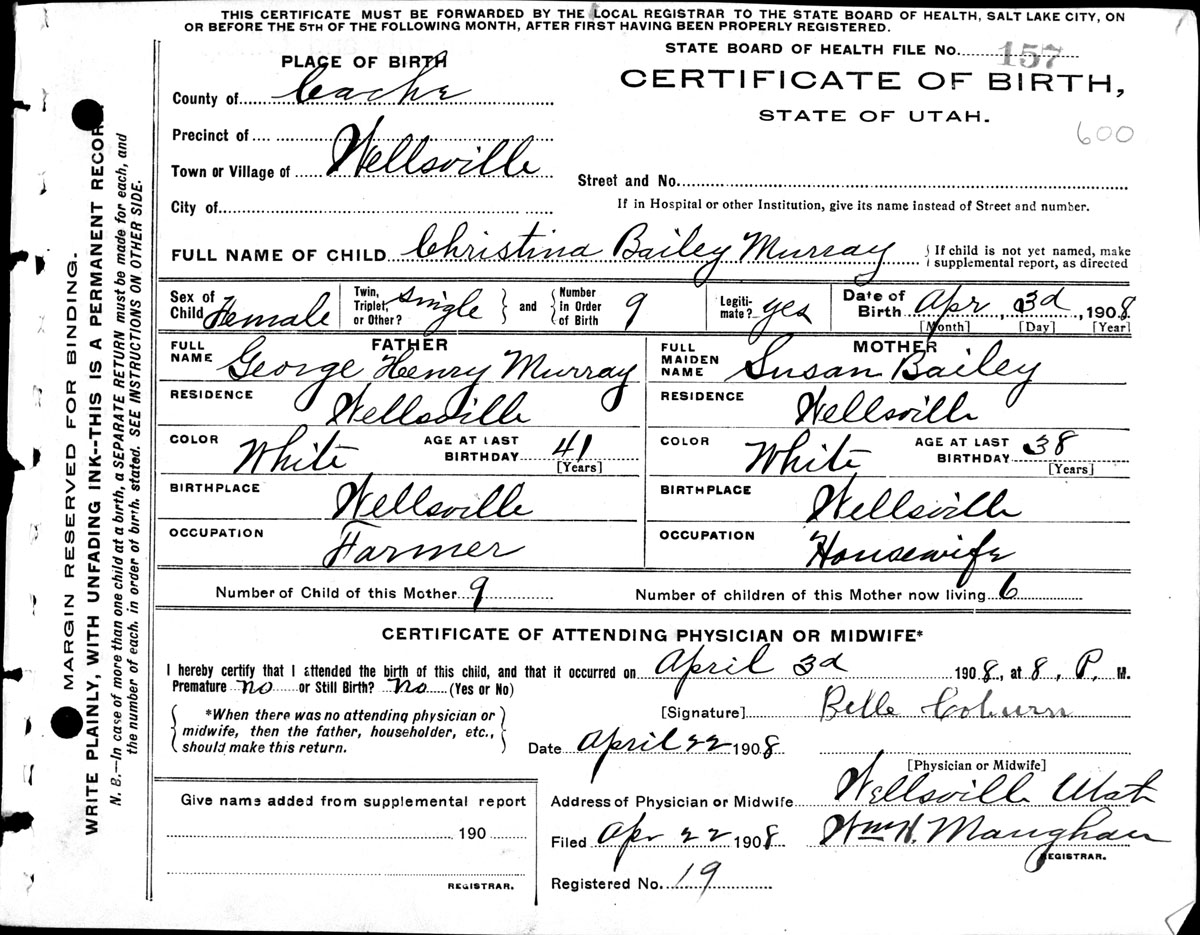 THIS CERTIFICATE MUST BE FORWARDED BY THE LOCAL REGISTRAR TO THE STATE BOARD OF HEALTH, SALT LAKE CITY, ON
OR BEFORE THE 5TH OF THE FOLLOWING MONTH, AFTER FIRST HAVING BEEN PROPERLY REGISTERED.
STATE BOARD OF HEALTH FILE No. 157
CERTIFICATE OF BIRTH,
STATE OF UTAH.
600
PLACE OF BIRTH
County of Cache
Precinct of
Town or Village of Wellsville
City of
Street and No.
If in Hospital or other Institution, give its name instead of Street and number.
FULL NAME OF CHILD Christina Bailey Murray { If child is not yet named, make
supplemental report, as directed
Sex of Child Female
Twin, Triplet, or Other? single } and { Number in Order of Birth 9
Legiti-mate? yes
Date of Birth Apr, 3d, 1908
[Month] [Day] [Year]
FATHER
FULL NAME George Henry Murray
RESIDENCE Wellsville
COLOR White AGE AT LAST BIRTHDAY 41
[Years]
BIRTHPLACE Wellsville
OCCUPATION Farmer
MOTHER
FULL MAIDEN NAME Susan Bailey
RESIDENCE Wellsville
COLOR White AGE AT LAST BIRTHDAY 38
[Years]
BIRTHPLACE Wellsville
OCCUPATION Housewife
Number of Child of this Mother 9 Number of children of this Mother now living 6
CERTIFICATE OF ATTENDING PHYSICIAN OR MIDWIFE*
I hereby certify that I attended the birth of this child, and that it occurred on April 3d 1908, at 8, P. M.
Premature no or Still Birth? No (Yes or No)
{ *When there was no attending physician or
midwife, then the father, householder, etc.,
should make this return. }
[Signature] Belle Coburn
Date April 22 1908
[Physician or Midwife]
Give name added from supplemental report
190
REGISTRAR.
Address of Physician or Midwife Wellsville Utah
Filed Apr 22 1908 Wm H. Maughan
REGISTRAR.
Registered No. 19
MARGIN RESERVED FOR BINDING.
WRITE PLAINLY, WITH UNFADING INK--THIS IS A PERMANENT RECORD.
N. B.—In case of more than one child at a birth, a SEPARATE RETURN must be made for each, and
the number of each, in order of birth, stated. SEE INSTRUCTIONS ON OTHER SIDE.